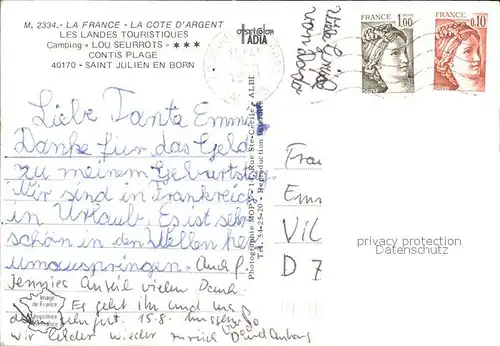 M. 2334.- LA FRANCE - LA COTE D'ARGENT
LES LANDES TOURISTIQUES
Camping « LOU SEURROTS » ★★★
CONTIS PLAGE
40170 - SAINT JULIEN EN BORN
Liebe Tante Emmi
Danke für das Geld
zu meinem Geburtstag.
Wir sind in Frankreich
in Urlaub. Es ist sehr
schön in den Wellen he
umzuspringen. Auch f.
Jennies Anteil vielen Dank.
Es geht ihr und uns
sehr gut. 15-8. müssen
wir leider wieder zurück
Image
de France
Imprimée
Photographie MOPY - 14, Rue Ste-Cécile - ALBI
Tel. 54-25-20 - Reproduction interdite
Viele Grüße
von
FRANCE
1,00
FRANCE
0,10
Frau
Emm
Vil
D 7
privacy protection
Datenschutz